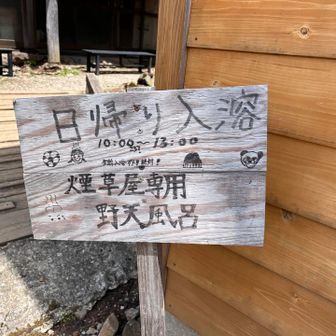 日帰り入溶
10:00〜13:00
煙草屋専用
野天風呂